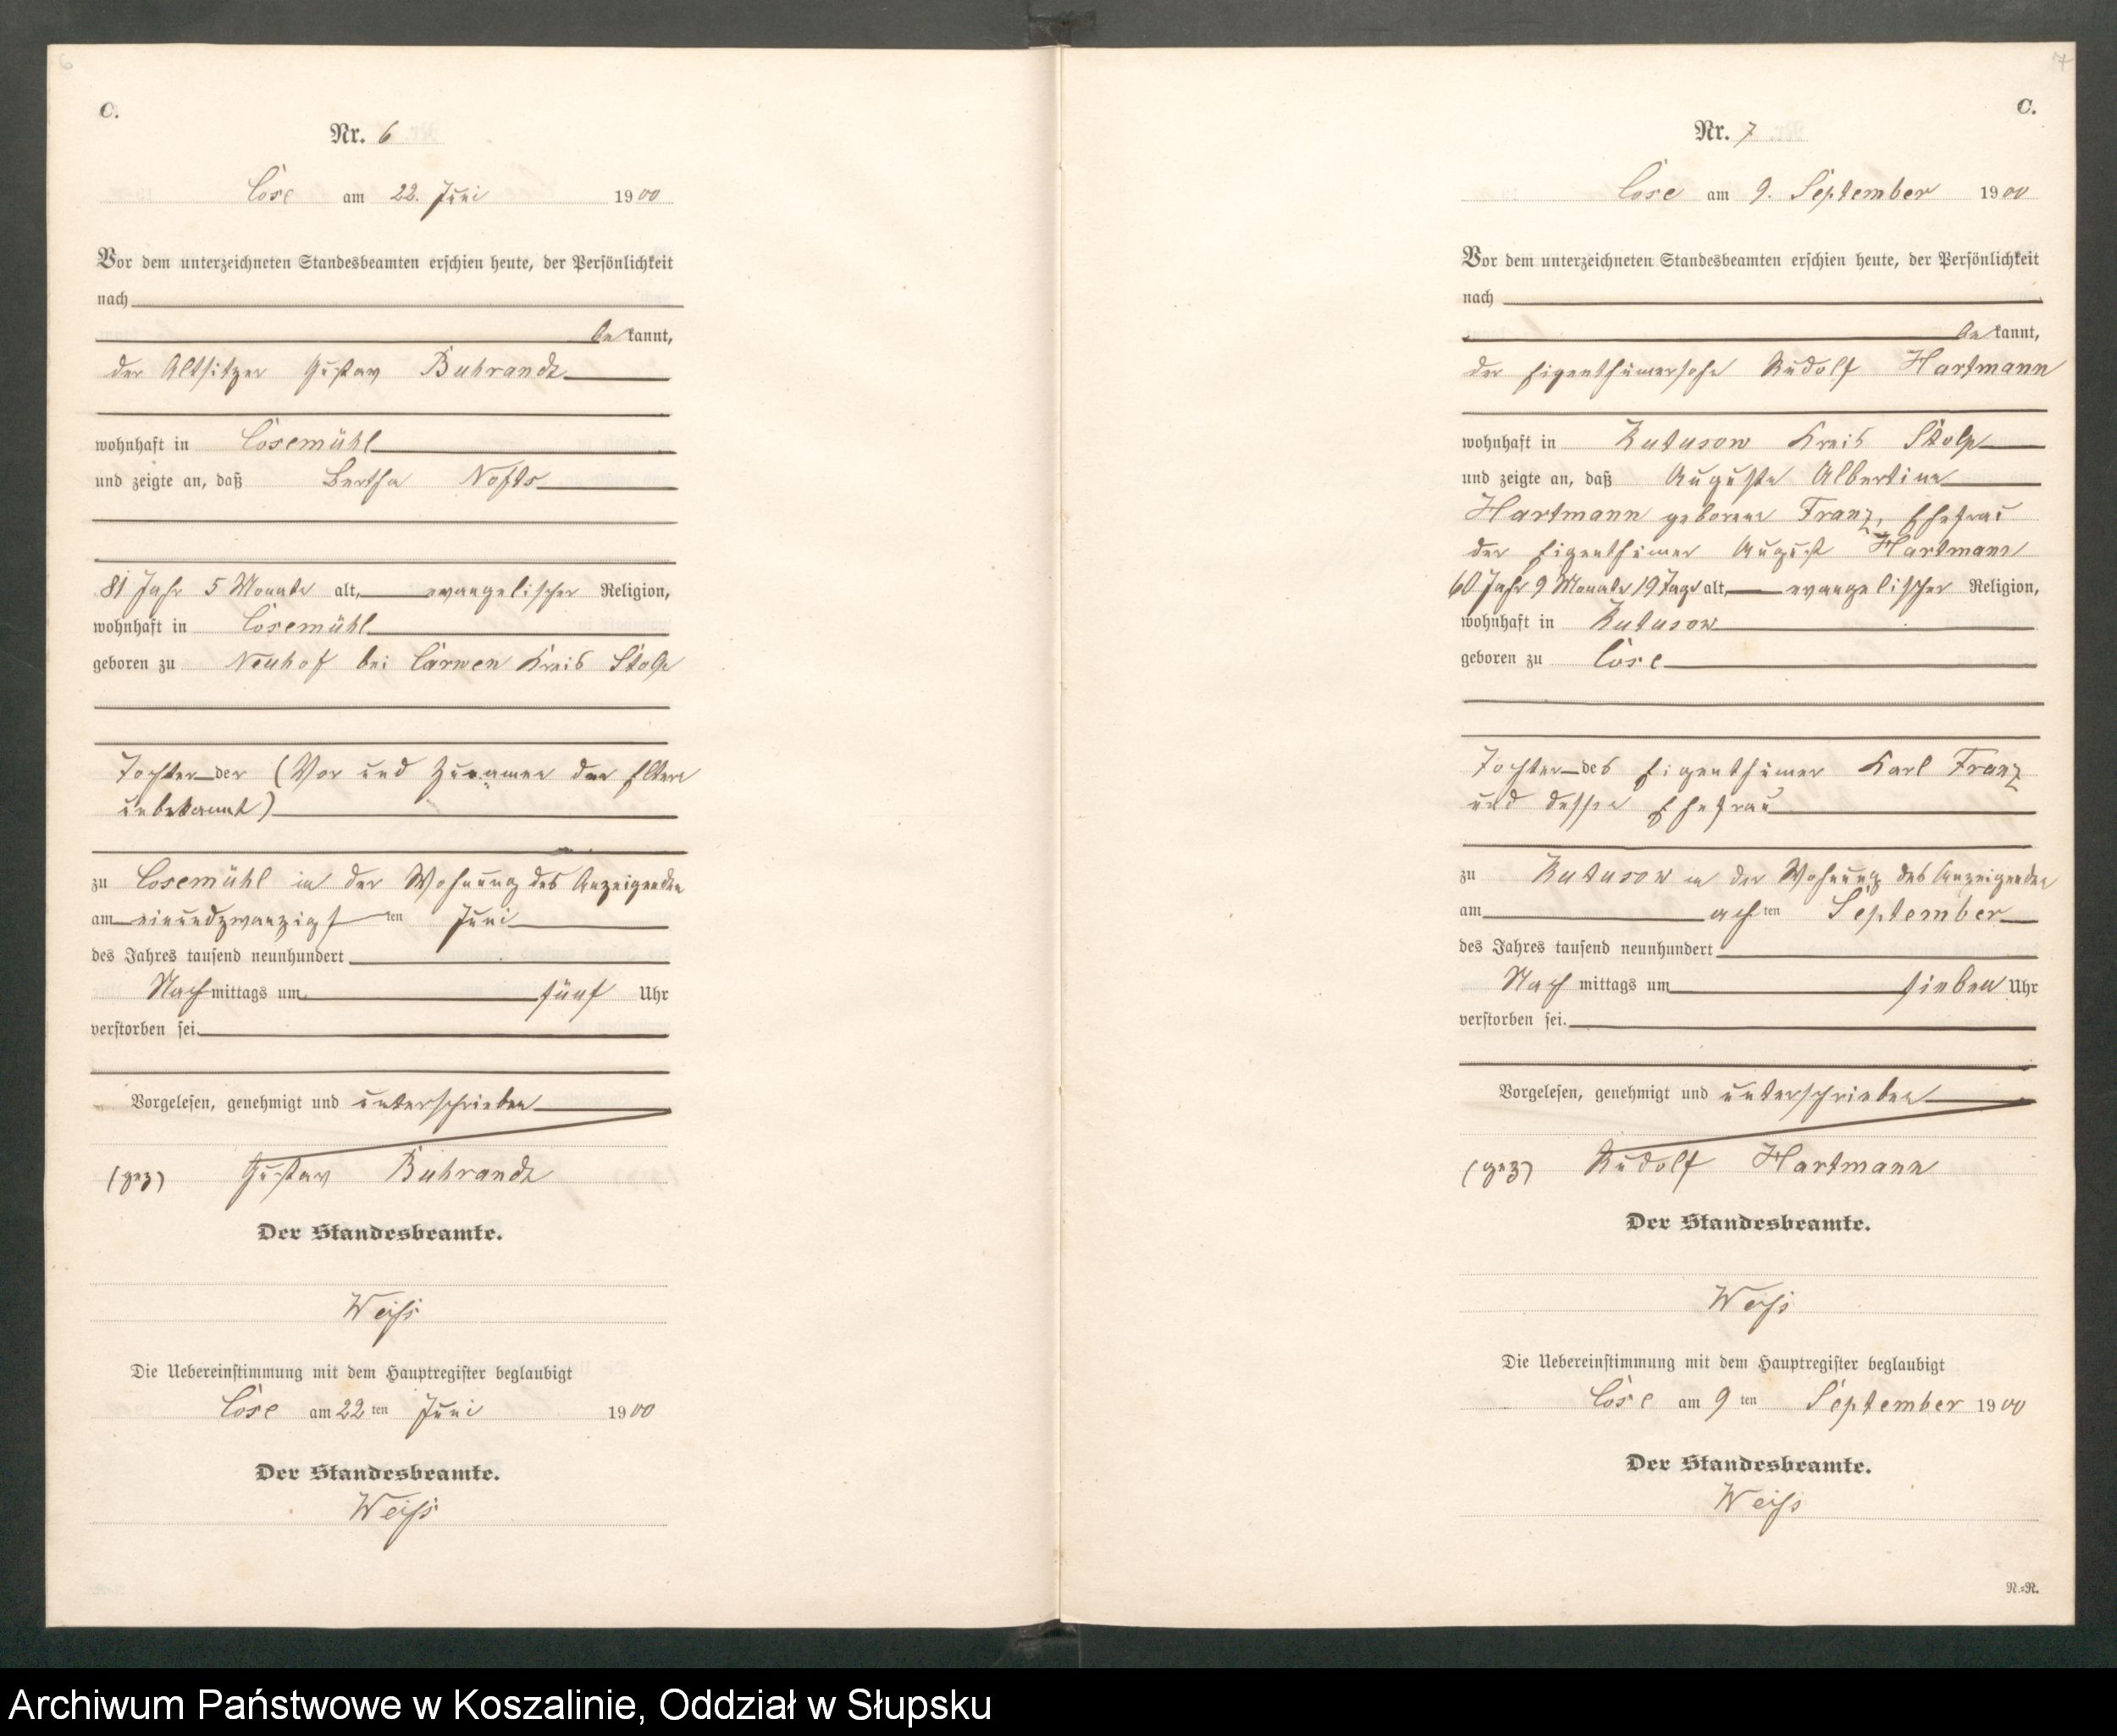 6
C.
Nr. 6
Cose am 22. Juni 1900
Vor dem unterzeichneten Standesbeamten erschien heute, der Persönlichkeit
nach
bekannt,
der Altsitzer Gustav Buhrandt
wohnhaft in Cosemühl
und zeigte an, daß Bertha
81 Jahr 5 Monate alt, evangelischer Religion,
wohnhaft in Cosemühl
geboren zu Neuhof bei Carwen Kreis Stolp
Tochter der (Vor und Zunamen der Eltern
unbekannt)
zu Cosemühl in der Wohnung des Anzeigenden
am einundzwanzigsten Juni
des Jahres tausend neunhundert
Nachmittags um fünf Uhr
verstorben sei.
Vorgelesen, genehmigt und unterschrieben
(gez) Gustav Buhrandt
Der Standesbeamte.
Weiss
Die Uebereinstimmung mit dem Hauptregister beglaubigt
Cose am 22ten Juni 1900
Der Standesbeamte.
Weiss
7
C.
Nr. 7
Cose am 9. September 1900
Vor dem unterzeichneten Standesbeamten erschien heute, der Persönlichkeit
nach
bekannt,
der Eigenthümersohn Rudolf Hartmann
wohnhaft in Kutusow Kreis Stolp
und zeigte an, daß Auguste Albertine
Hartmann geborene Franz, Ehefrau
der Eigenthümer August Hartmann
60 Jahr 9 Monate 19 Tage alt, evangelischer Religion,
wohnhaft in Kutusow
geboren zu Cose
Tochter des Eigenthümer Karl Franz
und dessen Ehefrau
zu Kutusow in der Wohnung des Anzeigenden
am achten September
des Jahres tausend neunhundert
Nachmittags um sieben Uhr
verstorben sei.
Vorgelesen, genehmigt und unterschrieben
(gez) Rudolf Hartmann
Der Standesbeamte.
Weiss
Die Uebereinstimmung mit dem Hauptregister beglaubigt
Cose am 9ten September 1900
Der Standesbeamte.
Weiss
N.=R.
Archiwum Państwowe w Koszalinie, Oddział w Słupsku